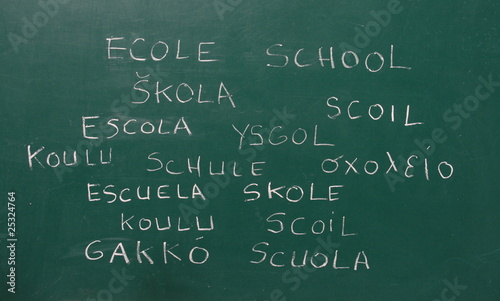 ECOLE SCHOOL
ŠKOLA
SCOIL
ESCOLA YSGOL
KOULU SCHULE σχολείο
ESCUELA SKOLE
KOULU SCOIL
GAKKÓ SCUOLA
© 25324764